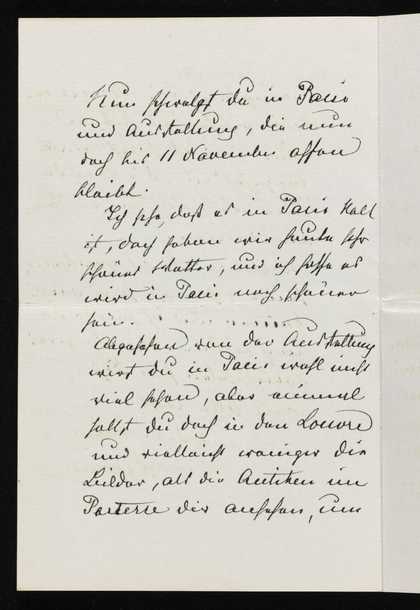 Nun schwelgst du in Paris
und Ausstellung, die nun
doch bis 11 November offen
bleibt.
Ich sehe, daß es in Paris kalt
ist, doch haben wir heute sehr
schönes Wetter, und ich hoffe es
wird in Paris noch schöner
sein.
Abgesehen von der Ausstellung
wirst du in Paris wohl nicht
viel sehen, aber einmal
sollst du doch in den Louvre
und vielleicht weniger die
Bilder, als die Antiken im
Parterre dir ansehen, um